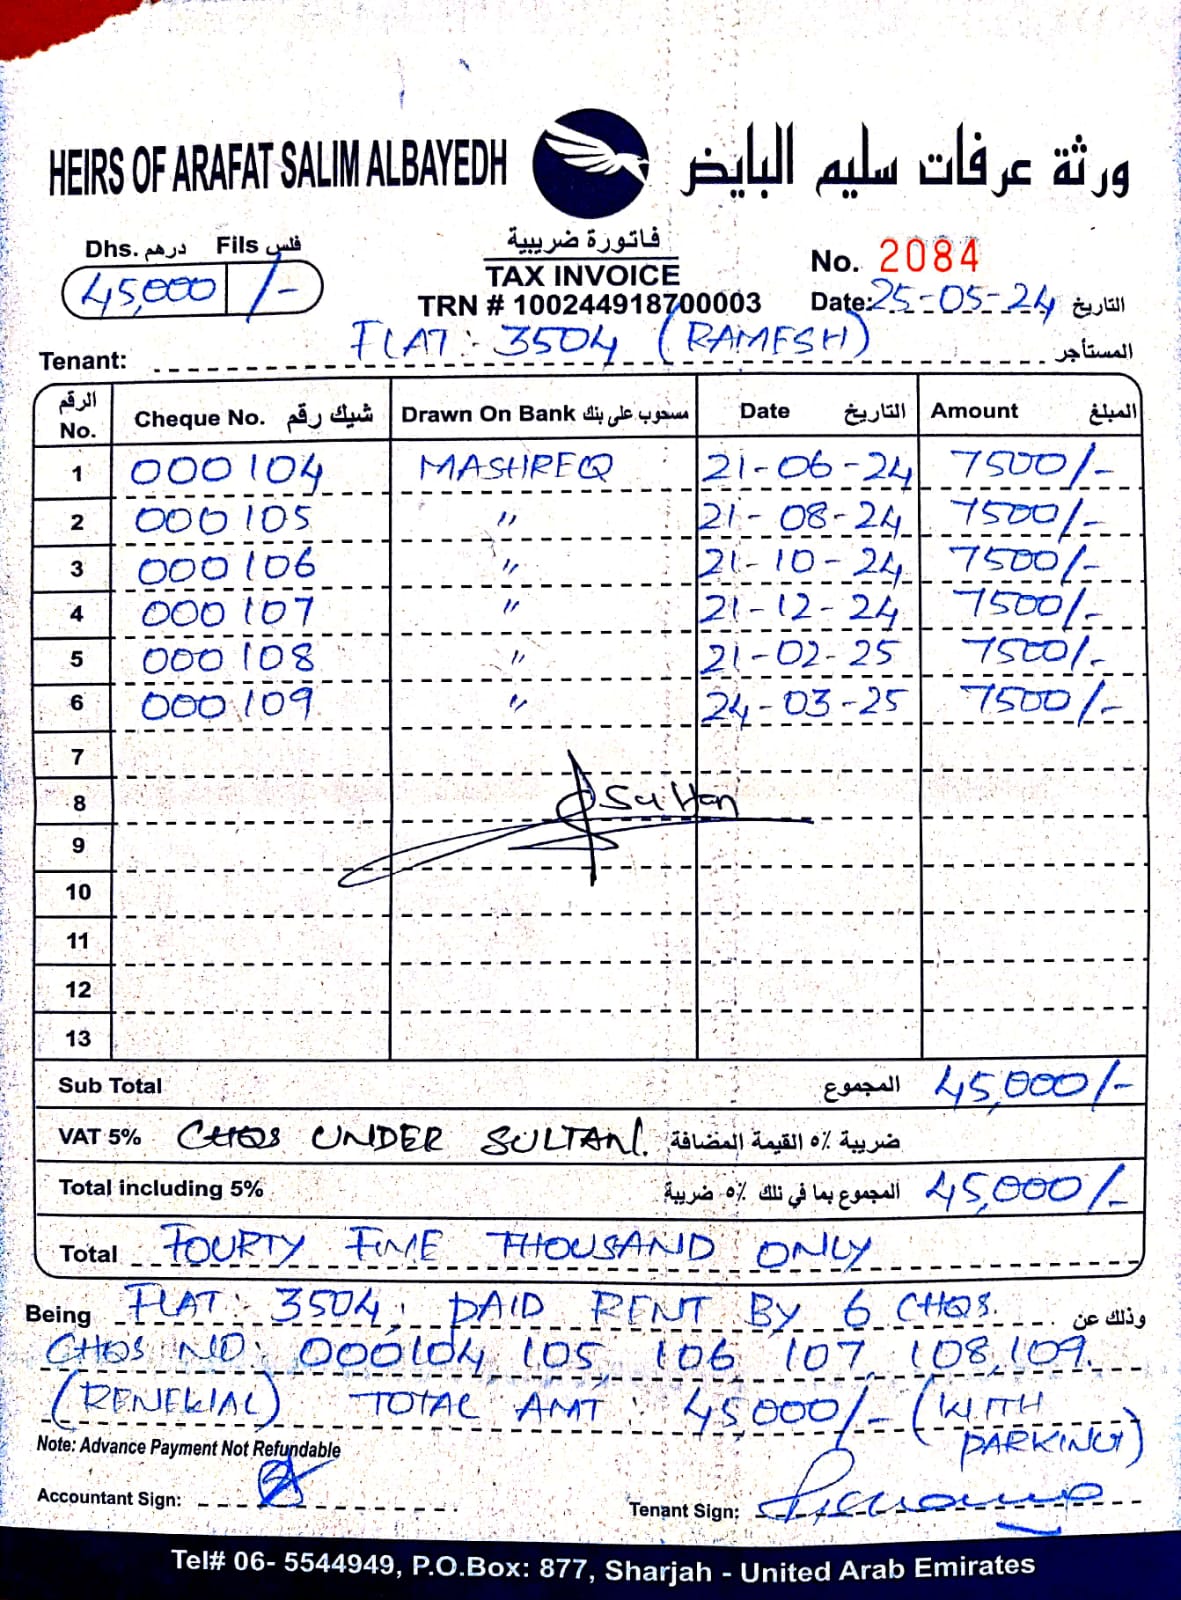 HEIRS OF ARAFAT SALIM ALBAYEDH ورثة عرفات سليم البايض
Dhs. درهم Fils فلس
45,000 /-
فاتورة ضريبية
TAX INVOICE
TRN # 100244918700003
No. 2084
Date: 25-05-24 التاريخ
Tenant: FLAT: 3504 (RAMESH) المستأجر
الرقم No. Cheque No. شيك رقم Drawn On Bank مسحوب على بنك Date التاريخ Amount المبلغ
1 000104 MASHREQ 21-06-24 7500/-
2 000105 " 21-08-24 7500/-
3 000106 " 21-10-24 7500/-
4 000107 " 21-12-24 7500/-
5 000108 " 21-02-25 7500/-
6 000109 " 24-03-25 7500/-
7
8 Sultan
9
10
11
12
13
Sub Total المجموع 45,000/-
VAT 5% CHQS UNDER SULTAN. ضريبة ٥٪ القيمة المضافة
Total including 5% المجموع بما في ذلك ٥٪ ضريبة 45,000/-
Total FOURTY FIVE THOUSAND ONLY
Being FLAT: 3504, PAID RENT BY 6 CHQS. وذلك عن
CHQS NO: 000104, 105, 106, 107, 108, 109.
(RENEWAL) TOTAL AMT: 45,000/- (WITH PARKING)
Note: Advance Payment Not Refundable
Accountant Sign: Tenant Sign:
Tel# 06- 5544949, P.O.Box: 877, Sharjah - United Arab Emirates